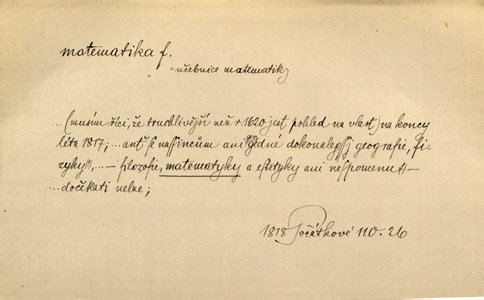 matematika f.
= učebnice matematiky
... (musím říci, že truchlivější než r. 1620 jest pohled na vlast) na konci
léta 1817; ... anť se našincům ani jedné dokonalejší geografie, fi-
zyky, ... – filozofie, matematyky a estetyky ani nespomenut –
dočekati nelze;
1818 Počátkové 110. 26